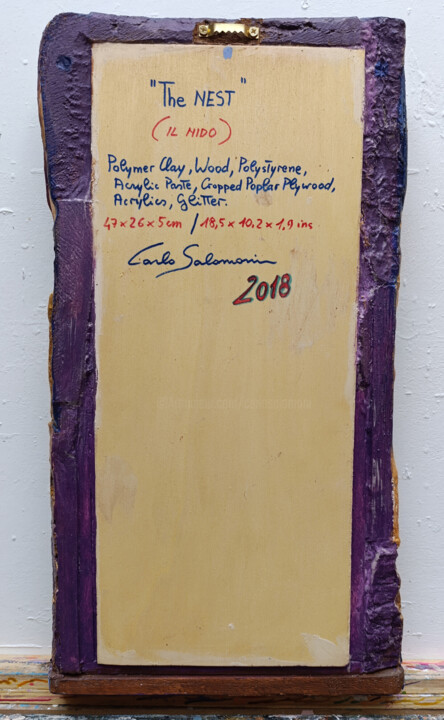 "The NEST"
(IL NIDO)
Polymer Clay, Wood, Polystyrene,
Acrylic Paste, Cropped Poplar Plywood,
Acrylics, Glitter.
47x26x5cm / 18,5 x 10,2 x 1,9 ins
Carlo Salomoni
2018